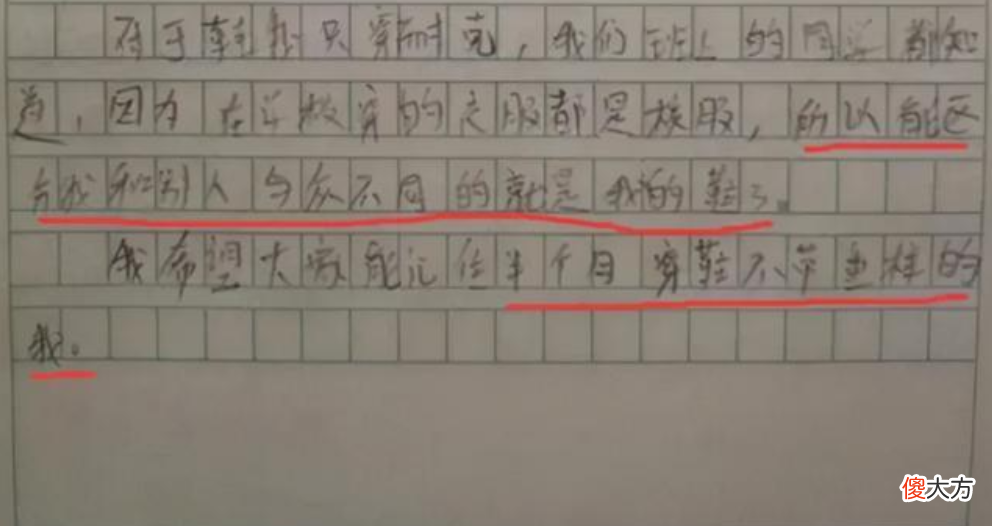 对于鞋我只穿耐克，我们班上的同学都知
道，因为在学校穿的衣服都是校服，所以能区
分我和别人与众不同的就是我的鞋了。
我希望大家能记住半个月穿鞋不带重样的
我。
傻大方